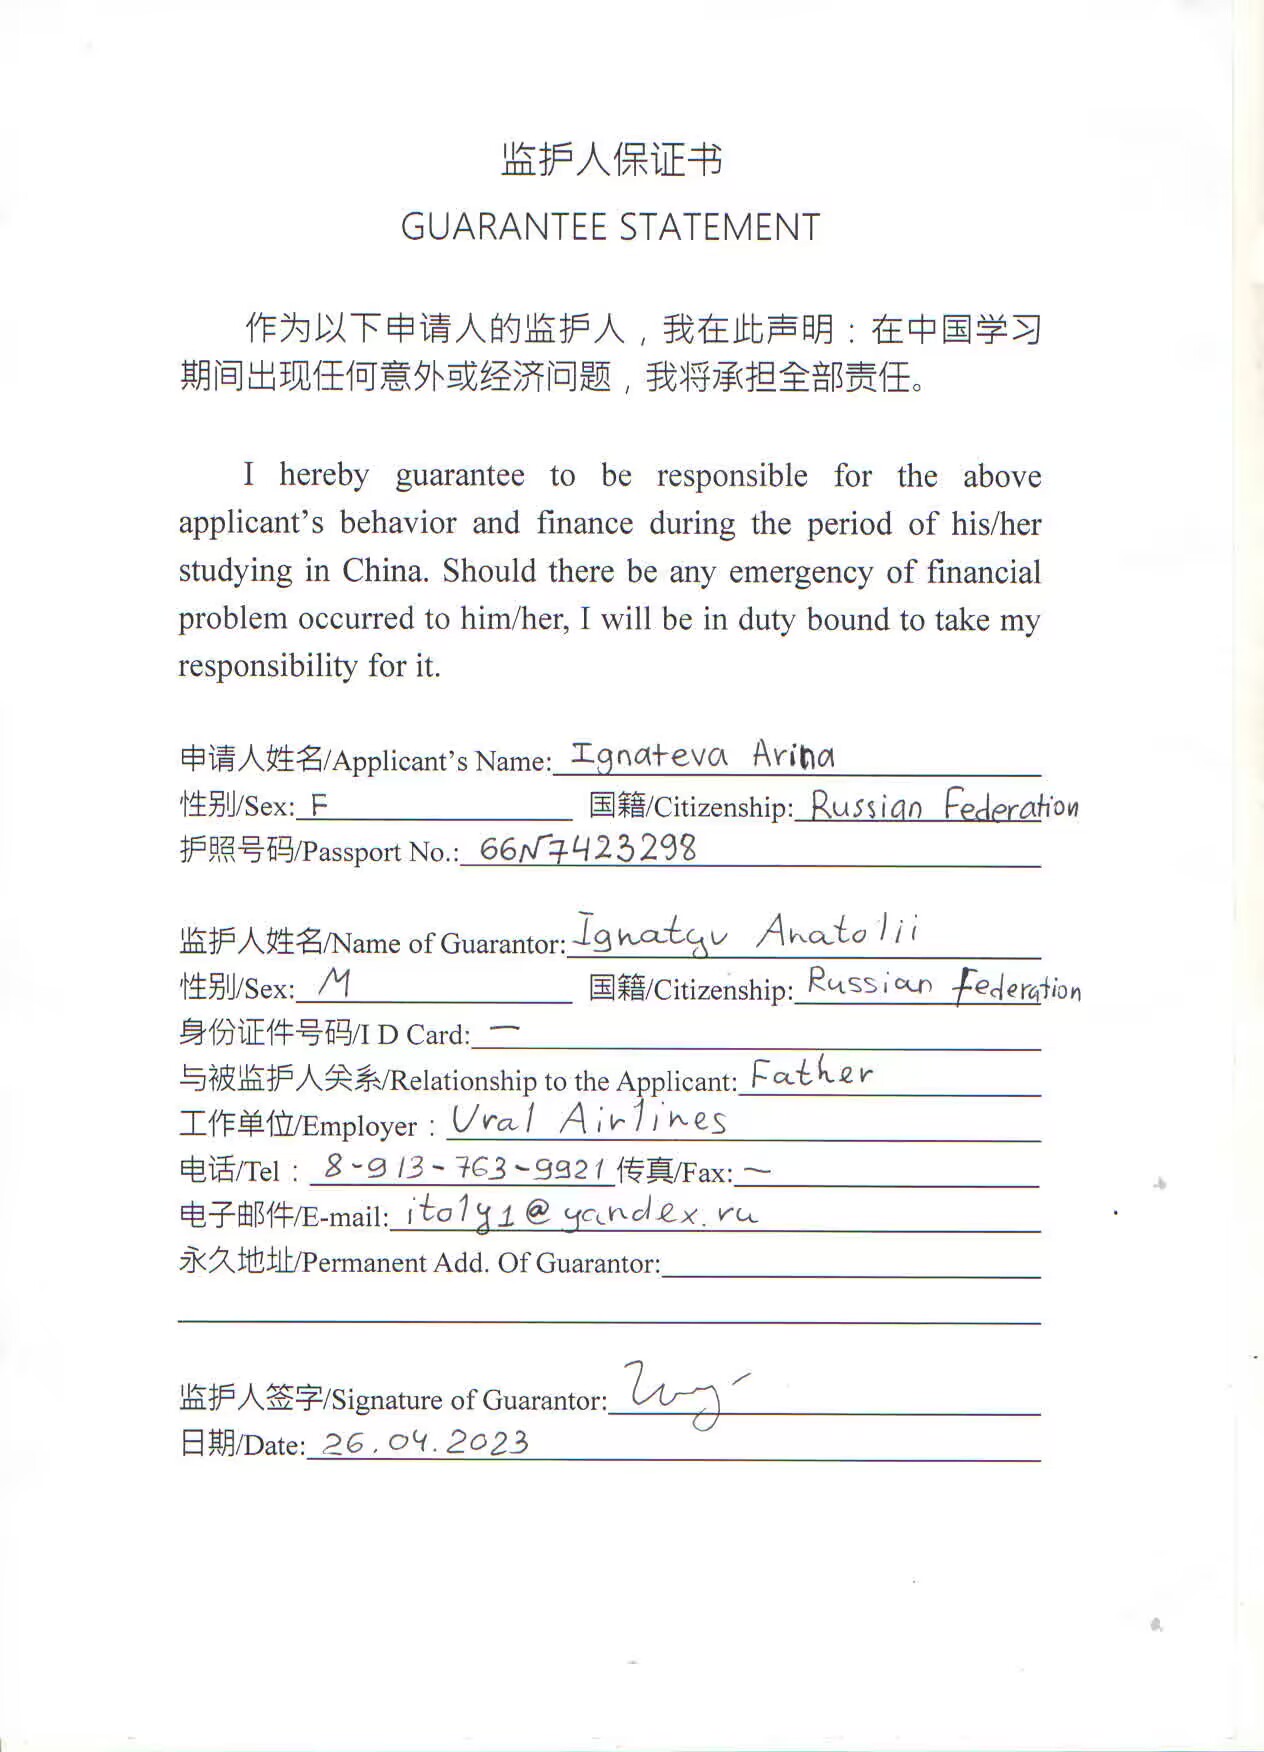 监护人保证书
GUARANTEE STATEMENT
作为以下申请人的监护人，我在此声明：在中国学习
期间出现任何意外或经济问题，我将承担全部责任。
I hereby guarantee to be responsible for the above
applicant's behavior and finance during the period of his/her
studying in China. Should there be any emergency of financial
problem occurred to him/her, I will be in duty bound to take my
responsibility for it.
申请人姓名/Applicant's Name: Ignateva Arina
性别/Sex: F 国籍/Citizenship: Russian Federation
护照号码/Passport No.: 66N7423298
监护人姓名/Name of Guarantor: Ignatyv Anatolii
性别/Sex: M 国籍/Citizenship: Russian Federation
身份证件号码/I D Card: —
与被监护人关系/Relationship to the Applicant: Father
工作单位/Employer：Ural Airlines
电话/Tel：8-913-763-9921 传真/Fax: —
电子邮件/E-mail: itoly1@yandex.ru
永久地址/Permanent Add. Of Guarantor:
监护人签字/Signature of Guarantor:
日期/Date: 26.04.2023